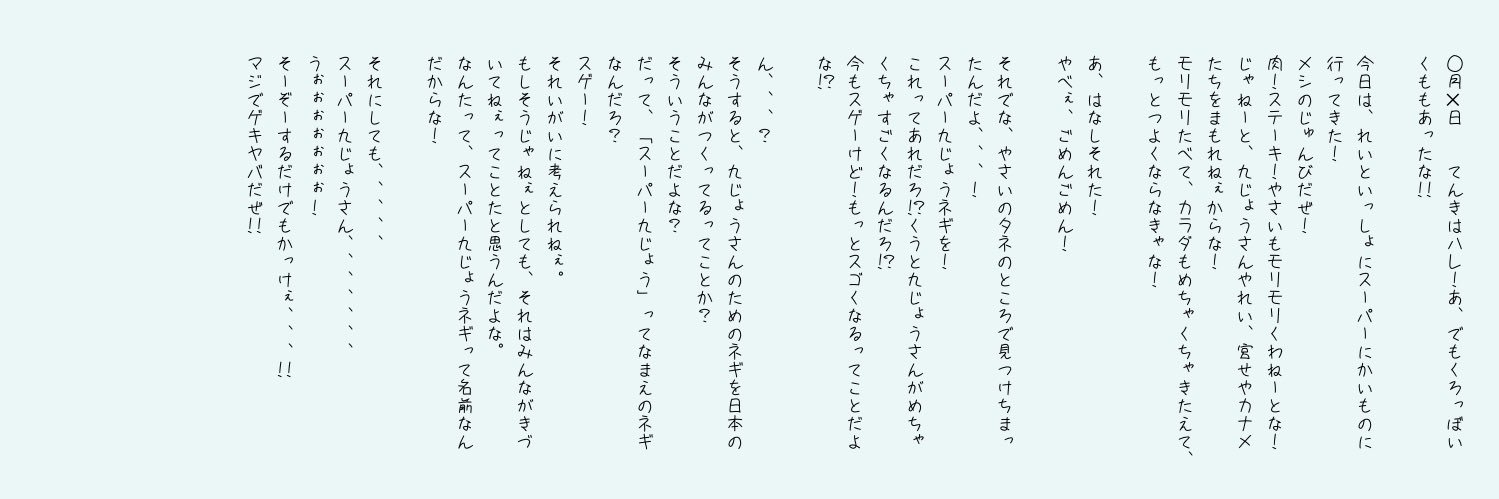 〇月×日　　てんきはハレ！あ、でもくろっぽい
くももあったな！！
今日は、れいといっしょにスーパーにかいものに
行ってきた！
メシのじゅんびだぜ！
肉！ステーキ！やさいもモリモリくわねーとな！
じゃねーと、九じょうさんやれい、宮せやカナメ
たちをまもれねぇからな！
モリモリたべて、カラダもめちゃくちゃきたえて、
もっとつよくならなきゃな！
あ、はなしそれた！
やべぇ、ごめんごめん！
それでな、やさいのタネのところで見つけちまっ
たんだよ、、、！
スーパー九じょうネギを！
これってあれだろ！？くうと九じょうさんがめちゃ
くちゃすごくなるんだろ！？
今もスゲーけど！もっとスゴくなるってことだよ
な！？
ん、、、？
そうすると、九じょうさんのためのネギを日本の
みんながつくってるってことか？
そういうことだよな？
だって、「スーパー九じょう」ってなまえのネギ
なんだろ？
スゲー！
それいがいに考えられねぇ。
もしそうじゃねぇとしても、それはみんながきづ
いてねぇってことたと思うんだよな。
なんたって、スーパー九じょうネギって名前なん
だからな！
それにしても、、、、、
スーパー九じょうさん、、、、、、、
うぉぉぉぉぉぉぉ！
そーぞーするだけでもかっけぇ、、、！！
マジでゲキヤバだぜ！！